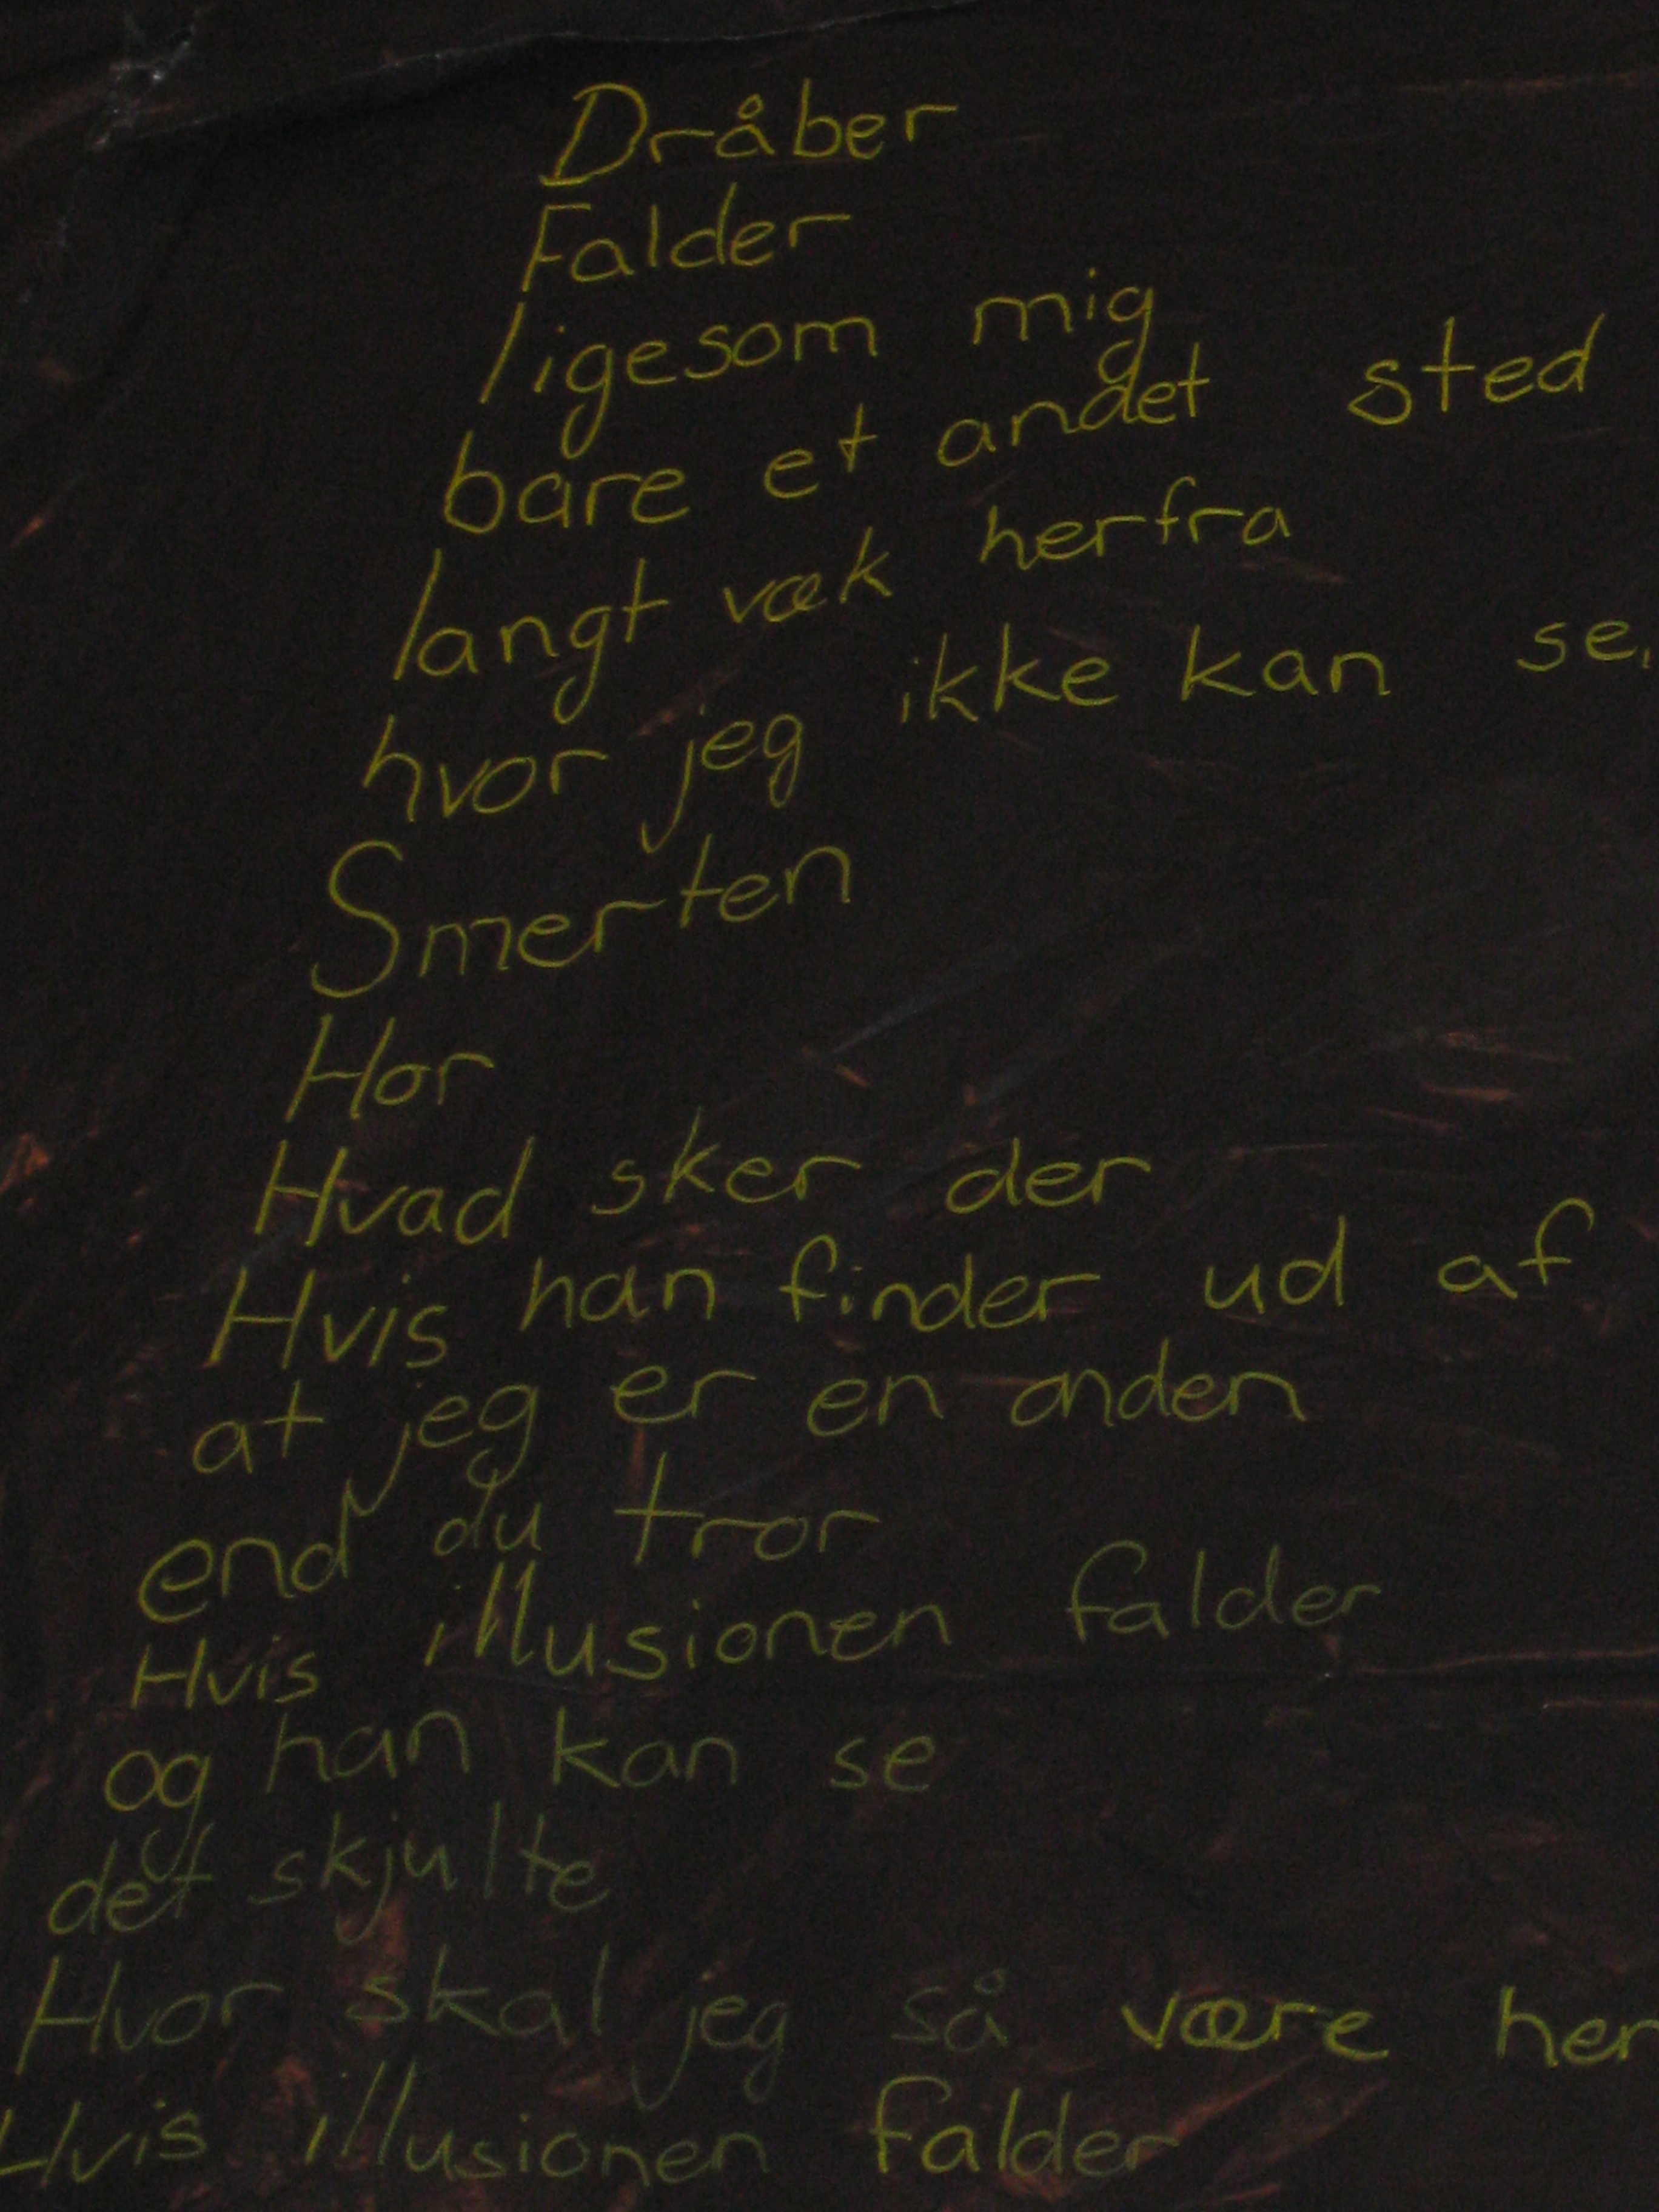 Dråber
Falder
ligesom mig
bare et andet sted
langt væk herfra
hvor jeg ikke kan se,
Smerten
Hor
Hvad sker der
Hvis han finder ud af
at jeg er en anden
end du tror
Hvis illusionen falder
og han kan se
det skjulte
Hvor skal jeg så være her
Hvis illusionen falder